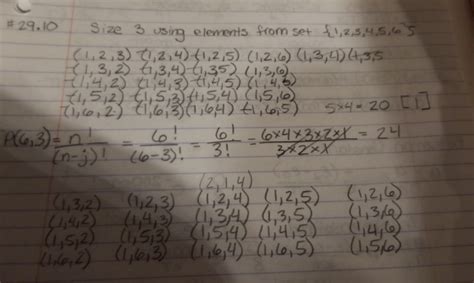 #29.10 Size 3 using elements from set {1,2,3,4,5,6}
(1,2,3) (1,2,4) (1,2,5) (1,2,6) (1,3,4) (1,3,5
(1,3,2) (1,3,4) (1,3,5) (1,3,6)
(1,4,2) (1,4,3) (1,4,5) (1,4,6)
(1,5,2) (1,5,3) (1,5,4) (1,5,6)
(1,6,2) (1,6,3) (1,6,4) (1,6,5) 5×4=20 [1]
P(6,3) = n!/(n-j)! = 6!/(6-3)! = 6!/3! = 6×4×3×2×1/3×2×1 = 24
(2,1,4)
(1,3,2) (1,2,3) (1,2,4) (1,2,5) (1,2,6)
(1,4,2) (1,4,3) (1,3,4) (1,3,5) (1,3,6)
(1,5,2) (1,5,3) (1,5,4) (1,4,5) (1,4,6)
(1,6,2) (1,6,3) (1,6,4) (1,6,5) (1,5,6)